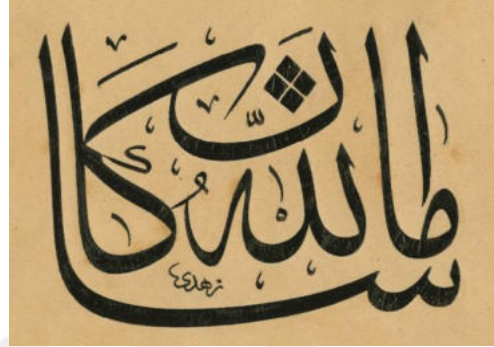 ما شاء الله كان
زهدى